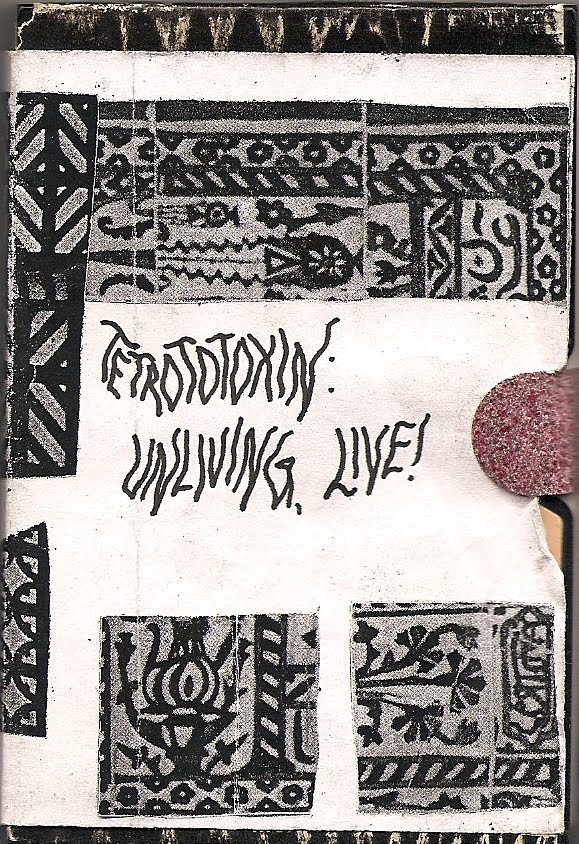 TETROTOTOXIN:
UNLIVING, LIVE!